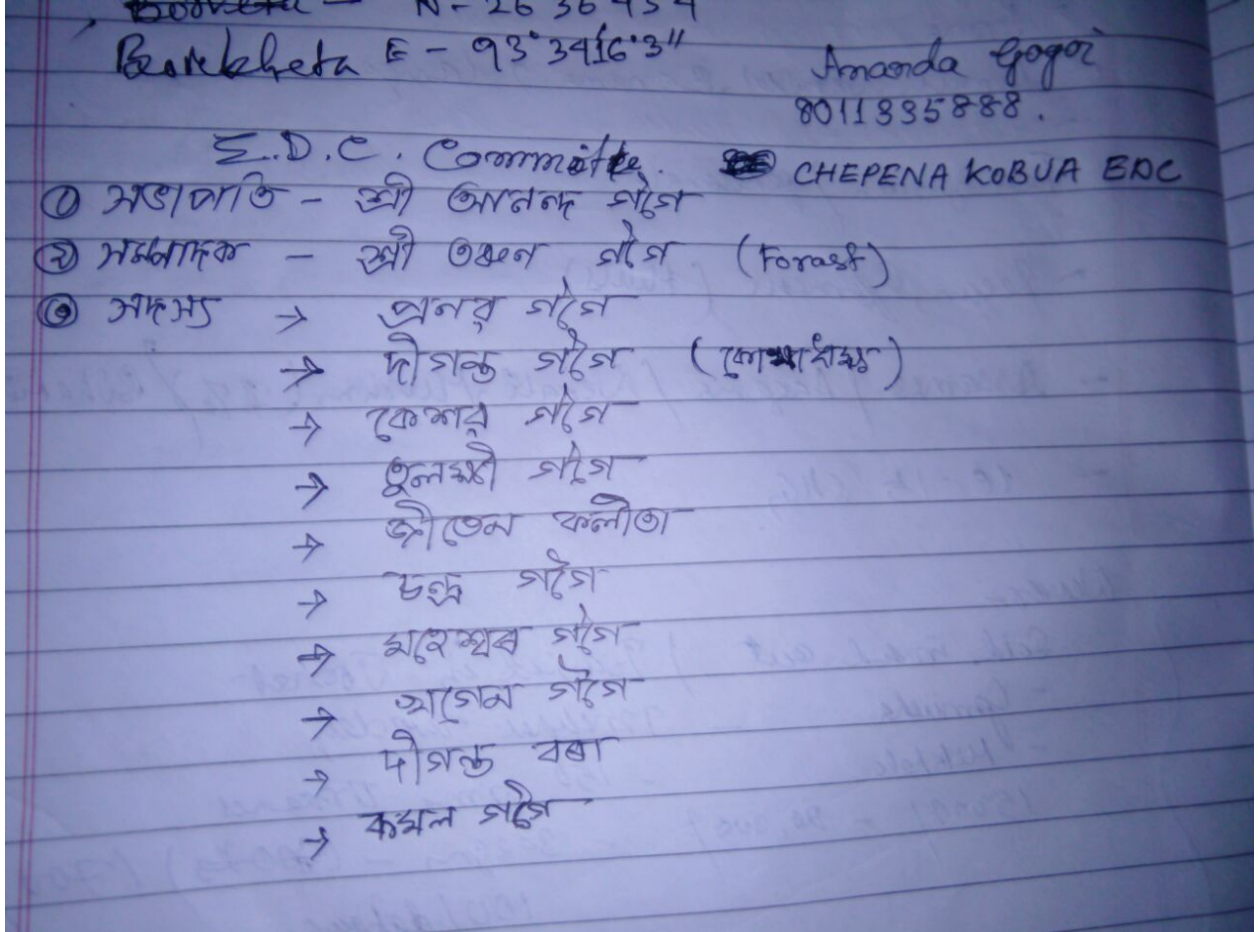 N - 26°36'45.4
Borekheta E - 93°34'16.3"
Ananda Gogoi
8011335888.
E.D.C. Committe. CHEPENA KOBUA EDC
① সভাপতি - শ্ৰী আনন্দ গগৈ
② সম্পাদক - শ্ৰী তৰুণ গগৈ (Forast)
③ সদস্য → প্ৰনৱ গগৈ
→ দীগন্ত গগৈ (কোষাধক্ষ)
→ কেশৱ গগৈ
→ তুলক্ষী গগৈ
→ জীতেন কলীতা
→ চন্দ্ৰ গগৈ
→ মহেশ্বৰ গগৈ
→ খগেন গগৈ
→ দীগন্ত বৰা
→ কমল গগৈ